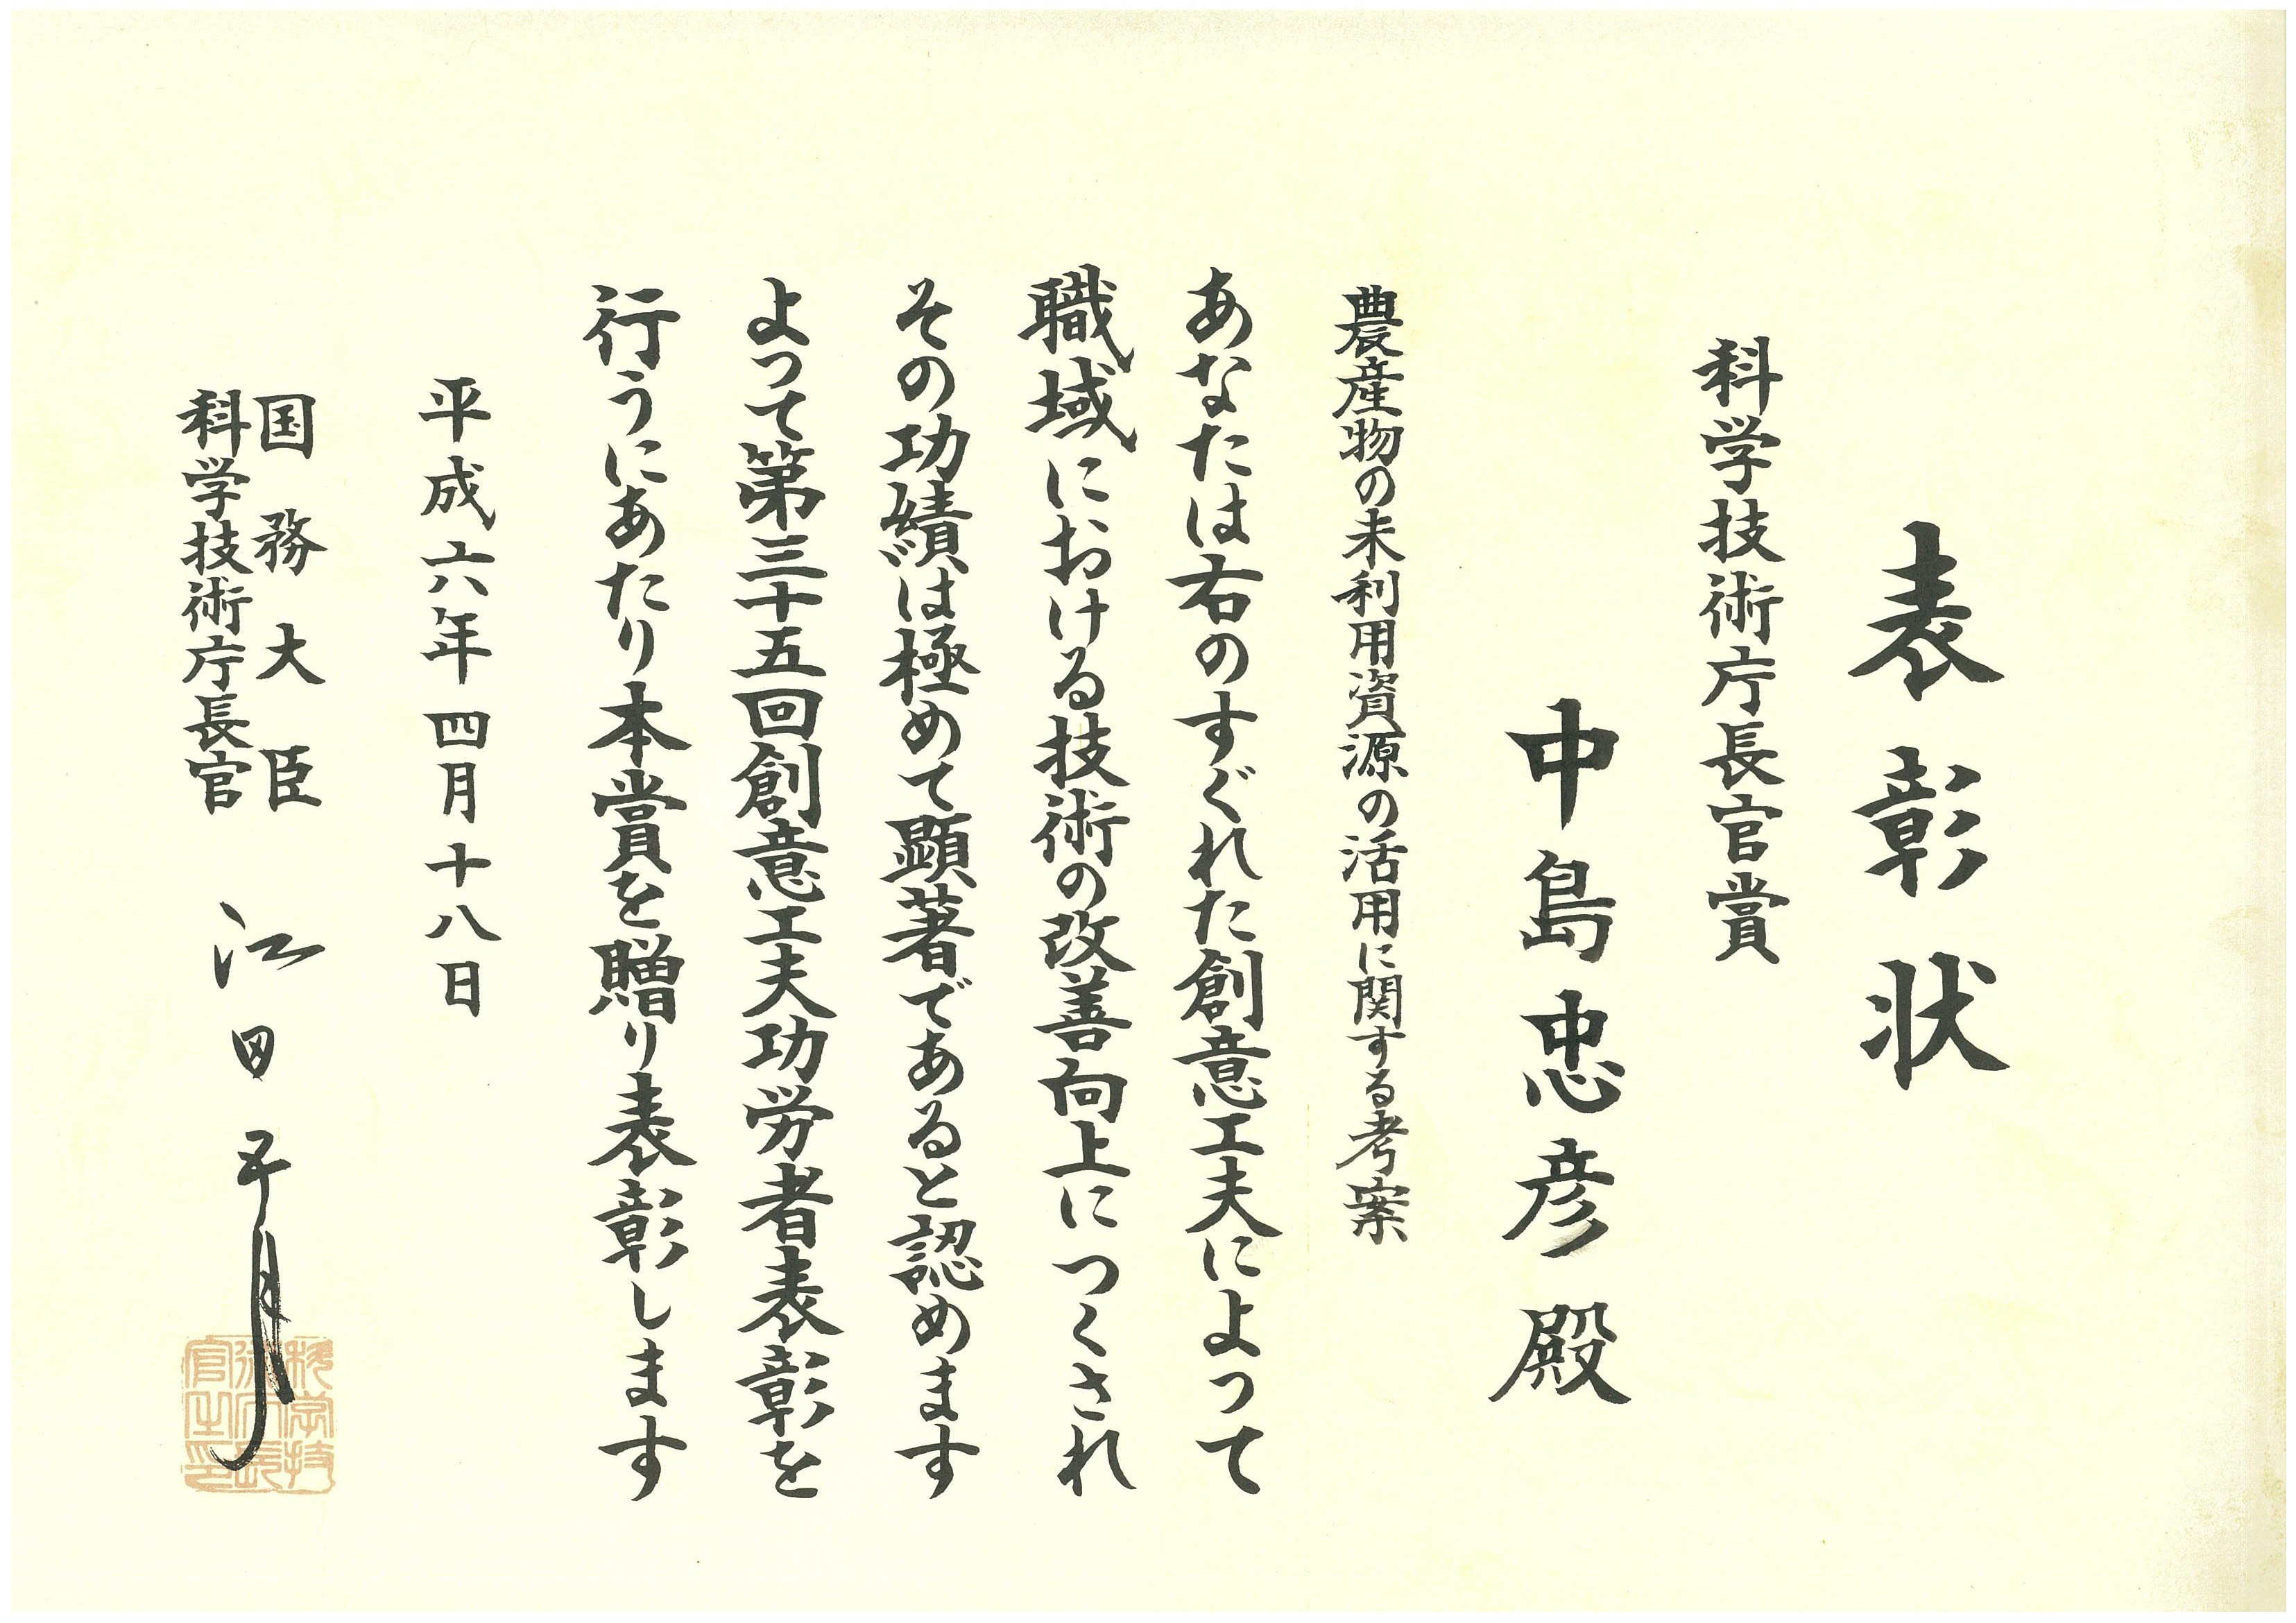 表彰状
科学技術庁長官賞
中島忠彦殿
農産物の未利用資源の活用に関する考案
あなたは右のすぐれた創意工夫によって
職域における技術の改善向上につくされ
その功績は極めて顕著であると認めます
よって第三十五回創意工夫功労者表彰を
行うにあたり本賞を贈り表彰します
平成六年四月十八日
国務大臣
科学技術庁長官
江田五月
科学技術庁長官之印